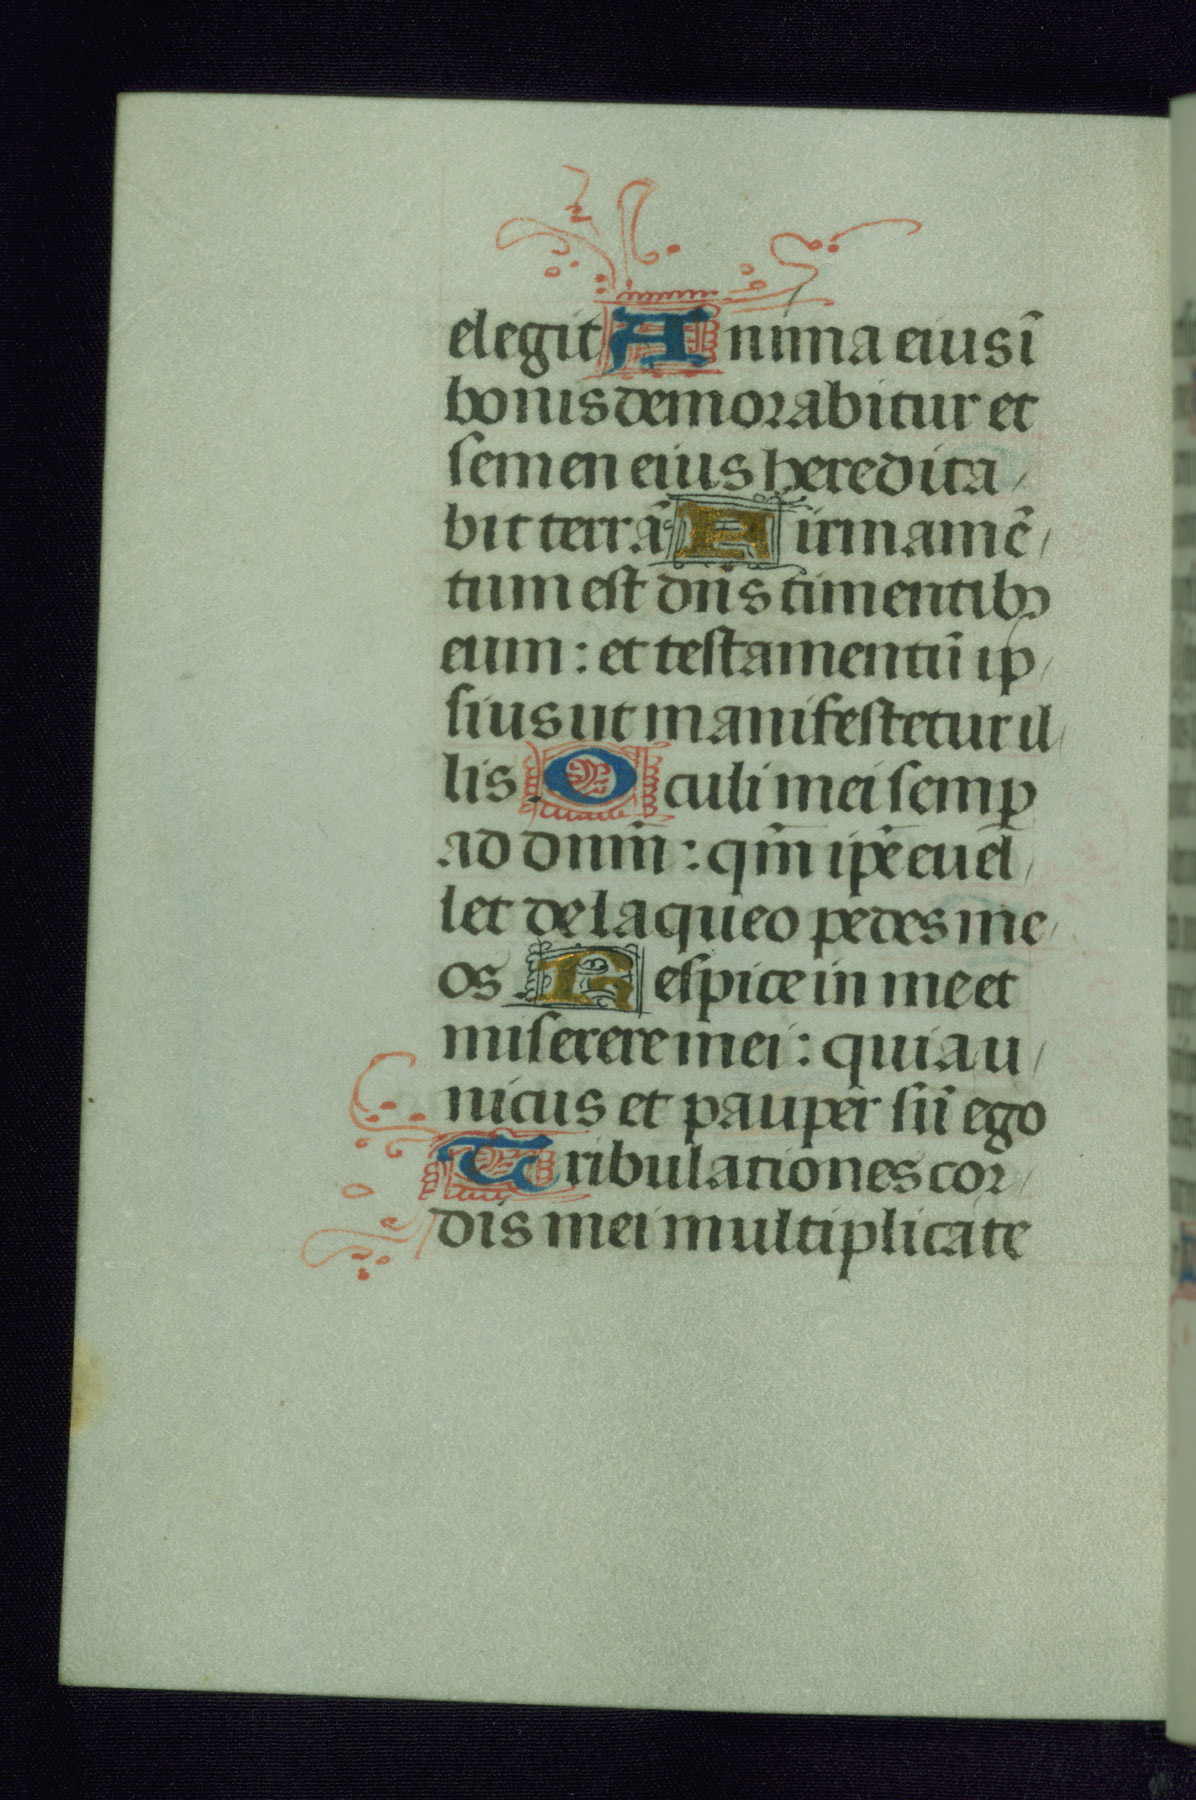 elegit Anima eius ī
bonis demorabitur et
semen eius heredita/
bit terrā Firmamē/
tum est dn̄s timentibꝫ
eum: et testamentū ip/
sius ut manifestetur il/
lis. Oculi mei semꝑ
ad dnm̄: qm̄ ip̄e euel/
let de laqueo pedes me/
os. Respice in me et
miserere mei: quia u/
nicus et pauper sū ego
Tribulationes cor/
dis mei multiplicate